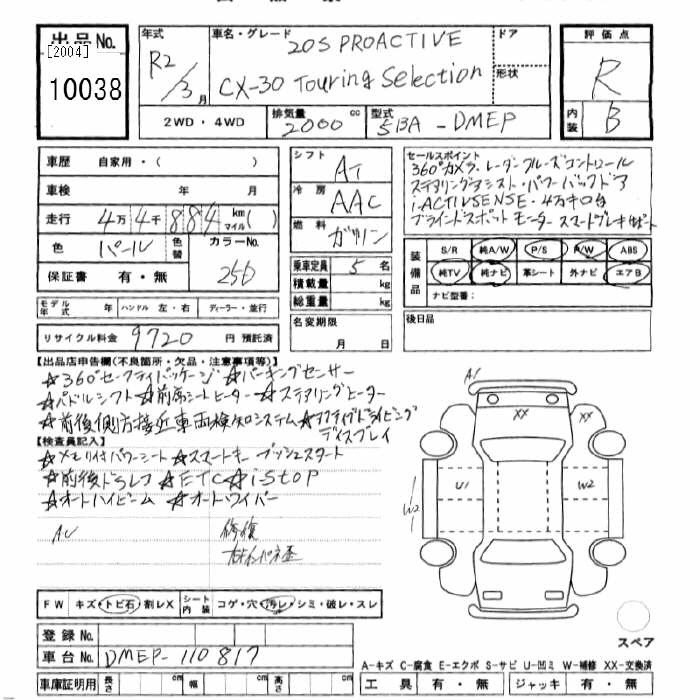 出品No.
[2004]
10038
年式
R2/3月
車名・グレード
20S PROACTIVE
CX-30 Touring Selection
ドア
形状
評価点
R
内装
B
2WD・4WD
排気量
2000 cc
型式
5BA-DMEP
車歴 自家用・( )
車検 年 月
走行 4万4千884 km マイル( )
色 パール 色替 カラーNo. 25D
保証書 有・無
シフト AT
冷房 AAC
燃料 ガソリン
乗車定員 5名
積載量 kg
総重量 kg
セールスポイント
360°カメラ・レーダークルーズコントロール
ステアリングアシスト・パワーバックドア
i-ACTIVSENSE・4万キロ台
ブラインドスポットモニター スマートブレーキサポート
装備品
S/R 純A/W P/S P/W ABS
純TV 純ナビ 革シート 外ナビ エアB
ナビ型番:
モデル年式 年 ハンドル 左・右 ディーラー・並行
名変期限
月 日
後日品
リサイクル料金 9720 円 預託済
【出品店申告欄(不良箇所・欠品・注意事項等)】
☆360°セーフティパッケージ ☆パーキングセンサー
☆パドルシフト ☆前席シートヒーター ☆ステアリングヒーター
☆前後側方接近車両検知システム ☆アクティブドライビング
ディスプレイ
【検査員記入】
☆メモリ付パワーシート ☆スマートキー プッシュスタート
☆前後ドラレコ ☆ETC ☆i-STOP
☆オートハイビーム ☆オートワイパー
AU
修復
A1
XX
XX
U1
W2
W2
FW キズ・トビ石・割レX シート内装 コゲ・穴・汚レ・シミ・破レ・スレ
登録No.
車台No. DMEP-110817
車庫証明用 長さ cm 幅 cm 高さ cm
スペア
A-キズ C-腐食 E-エクボ S-サビ U-凹ミ W-補修 XX-交換済
工具 有・無 ジャッキ 有・無